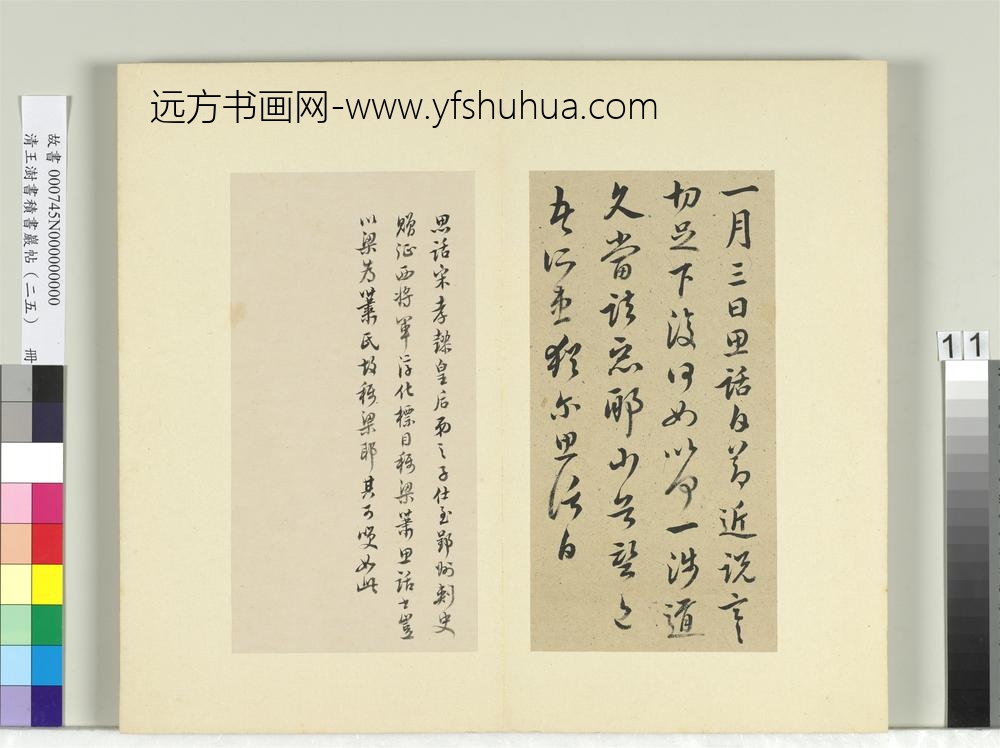 远方书画网-www.yfshuhua.com
故書 000745N000000000
清王澍書積書巖帖（二五） 冊
11
一月三日思話白節近說言
切足下復何如以即一涉道
久當諮惡耶山無諮之
吾正並猶尔思話白
思話宋孝懿皇后弟之子仕至郢州刺史
贈征西將軍淳化標目稱梁蕭思話士豈
以梁為蕭氏故稱梁耶其可嘆如此